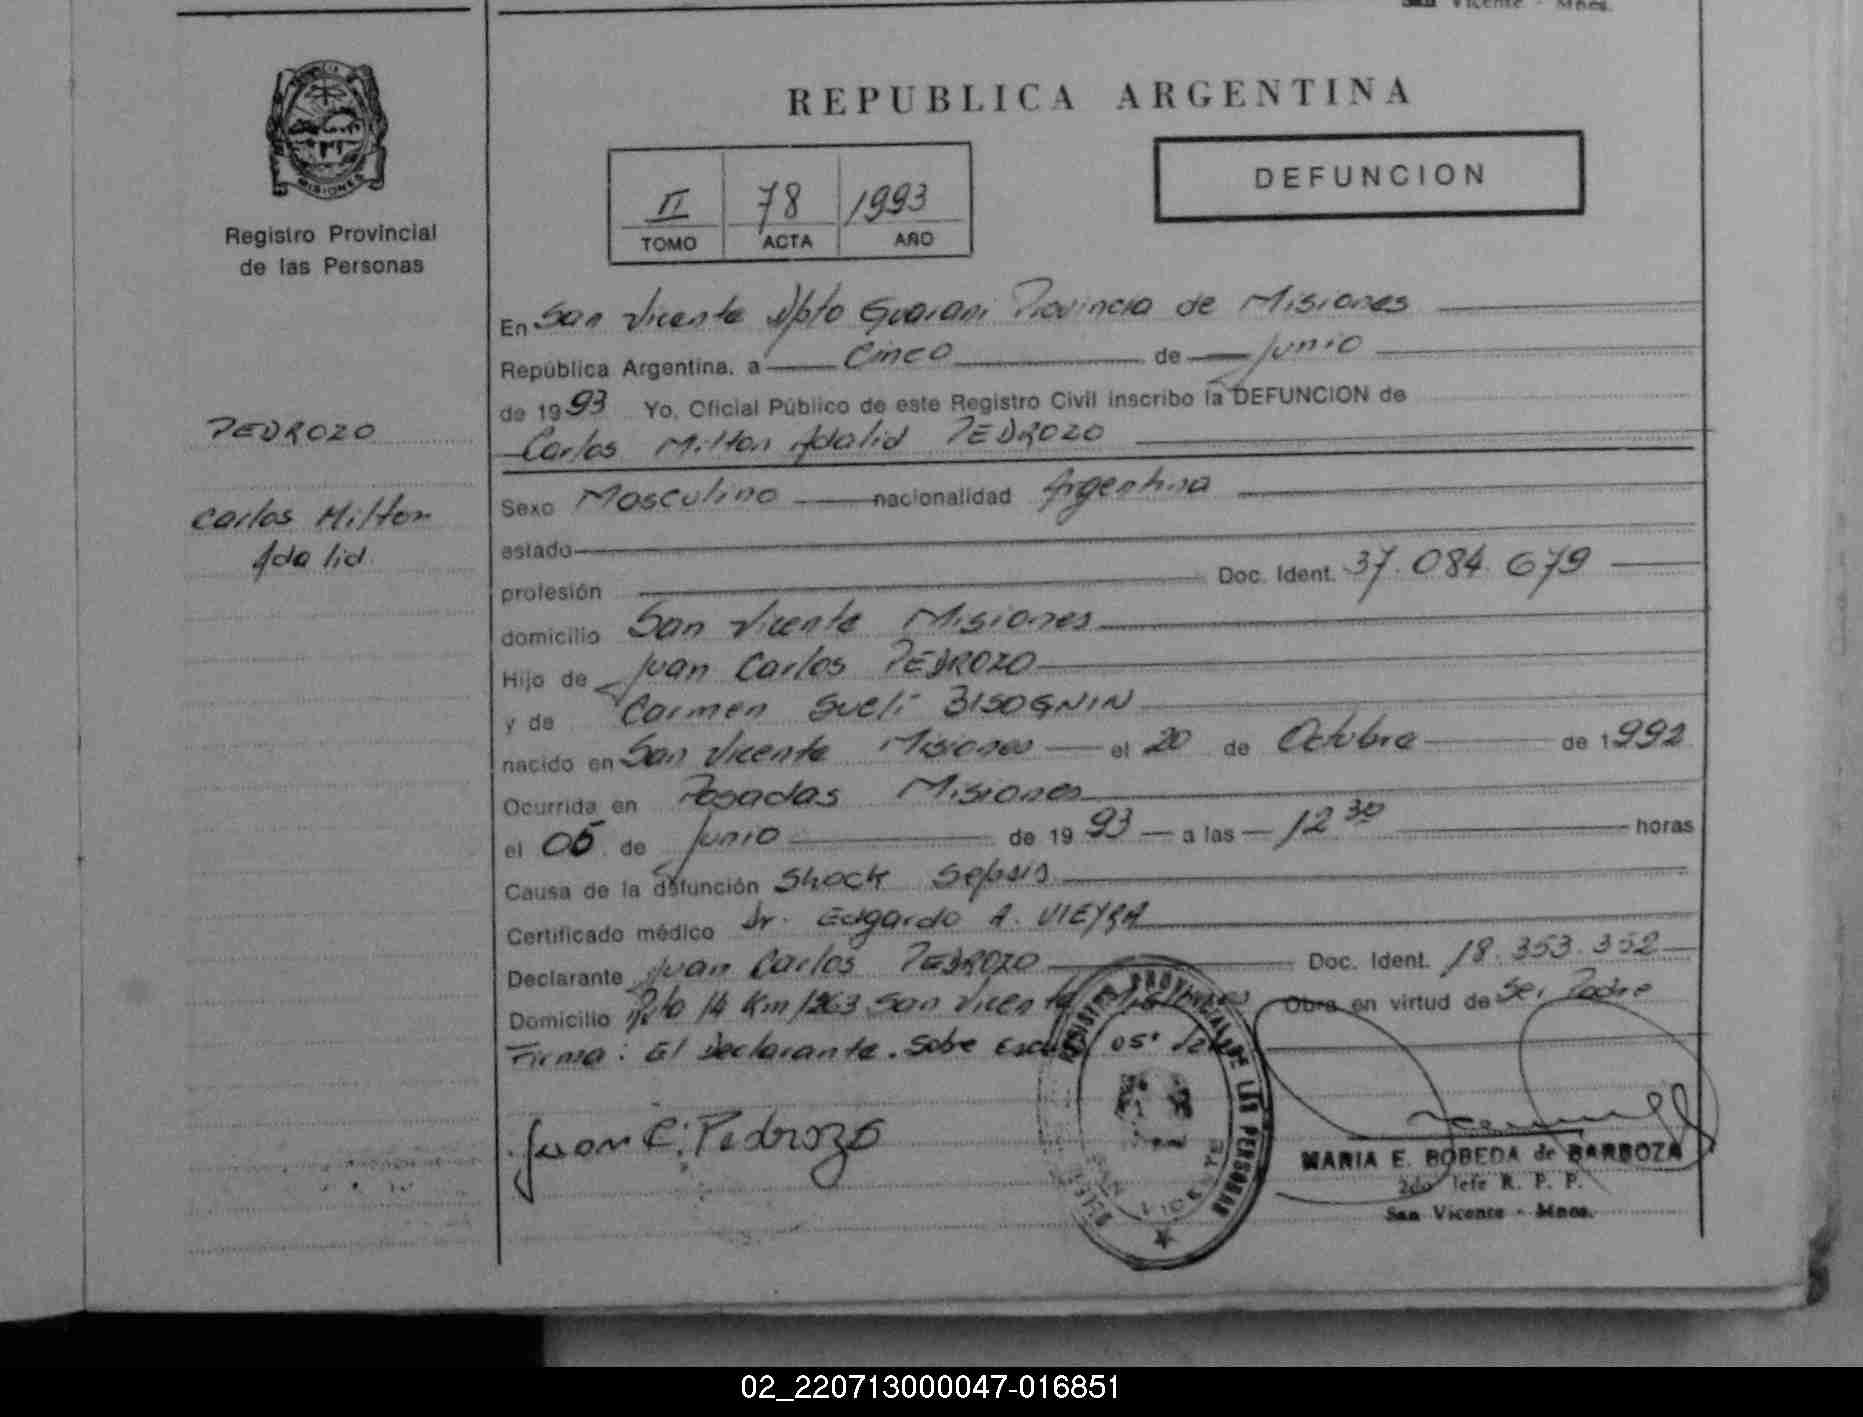 San Vicente - Mnes.
REPUBLICA ARGENTINA
PROVINCIA DE
MISIONES
Registro Provincial
de las Personas
II 78 1993
TOMO ACTA AÑO
DEFUNCION
PEDROZO
Carlos Milton
Adalid
En San Vicente Dpto Guarani Provincia de Misiones
República Argentina, a Cinco de Junio
de 1993 Yo, Oficial Público de este Registro Civil inscribo la DEFUNCION de
Carlos Milton Adalid PEDROZO
Sexo Masculino nacionalidad Argentina
estado
profesión Doc. Ident. 37.084.679
domicilio San Vicente Misiones
Hijo de Juan Carlos PEDROZO
y de Carmen Sueli BISOGNIN
nacido en San Vicente Misiones el 20 de Octubre de 1992
Ocurrida en Posadas Misiones
el 05 de Junio de 1993 a las 12 30 horas
Causa de la defunción Shock Sepsis
Certificado médico Dr. Edgardo A. VIEYRA
Declarante Juan Carlos PEDROZO Doc. Ident. 18.353.352
Domicilio Rta 14 Km 1263 San Vicente Misiones Obra en virtud de Ser Padre
Firma: El Declarante. Sobre 05
REGISTRO PROVINCIAL DE LAS PERSONAS
SAN VICENTE
Juan C. Pedrozo
MARIA E. BOBEDA de BARBOZA
2do Jefe R. P. P.
San Vicente - Mnes.
02_220713000047-016851